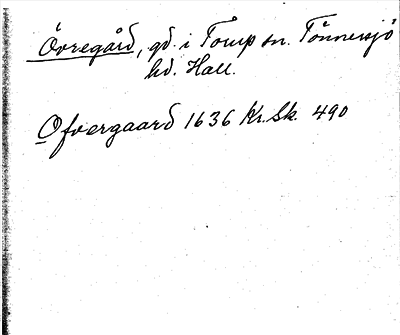 Övregård, gd. i Torup sn. Tönnersjö
hd. Hall.
Ofvergaard 1636 Kr. Sk. 490